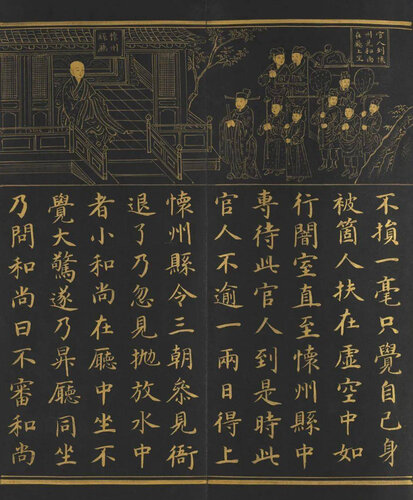 官人到懷
州見和尚
在廳上坐
不損一毫只覺自己身
被箇人扶在虛空中如
行闇室直至懷州縣中
專待此官人到是時此
官人不逾一兩日得上
懷州縣令三朝叅見衙
退了乃忽見抛放水中
者小和尚在廳中坐不
覺大驚遂乃昇廳同坐
乃問和尚曰不審和尚